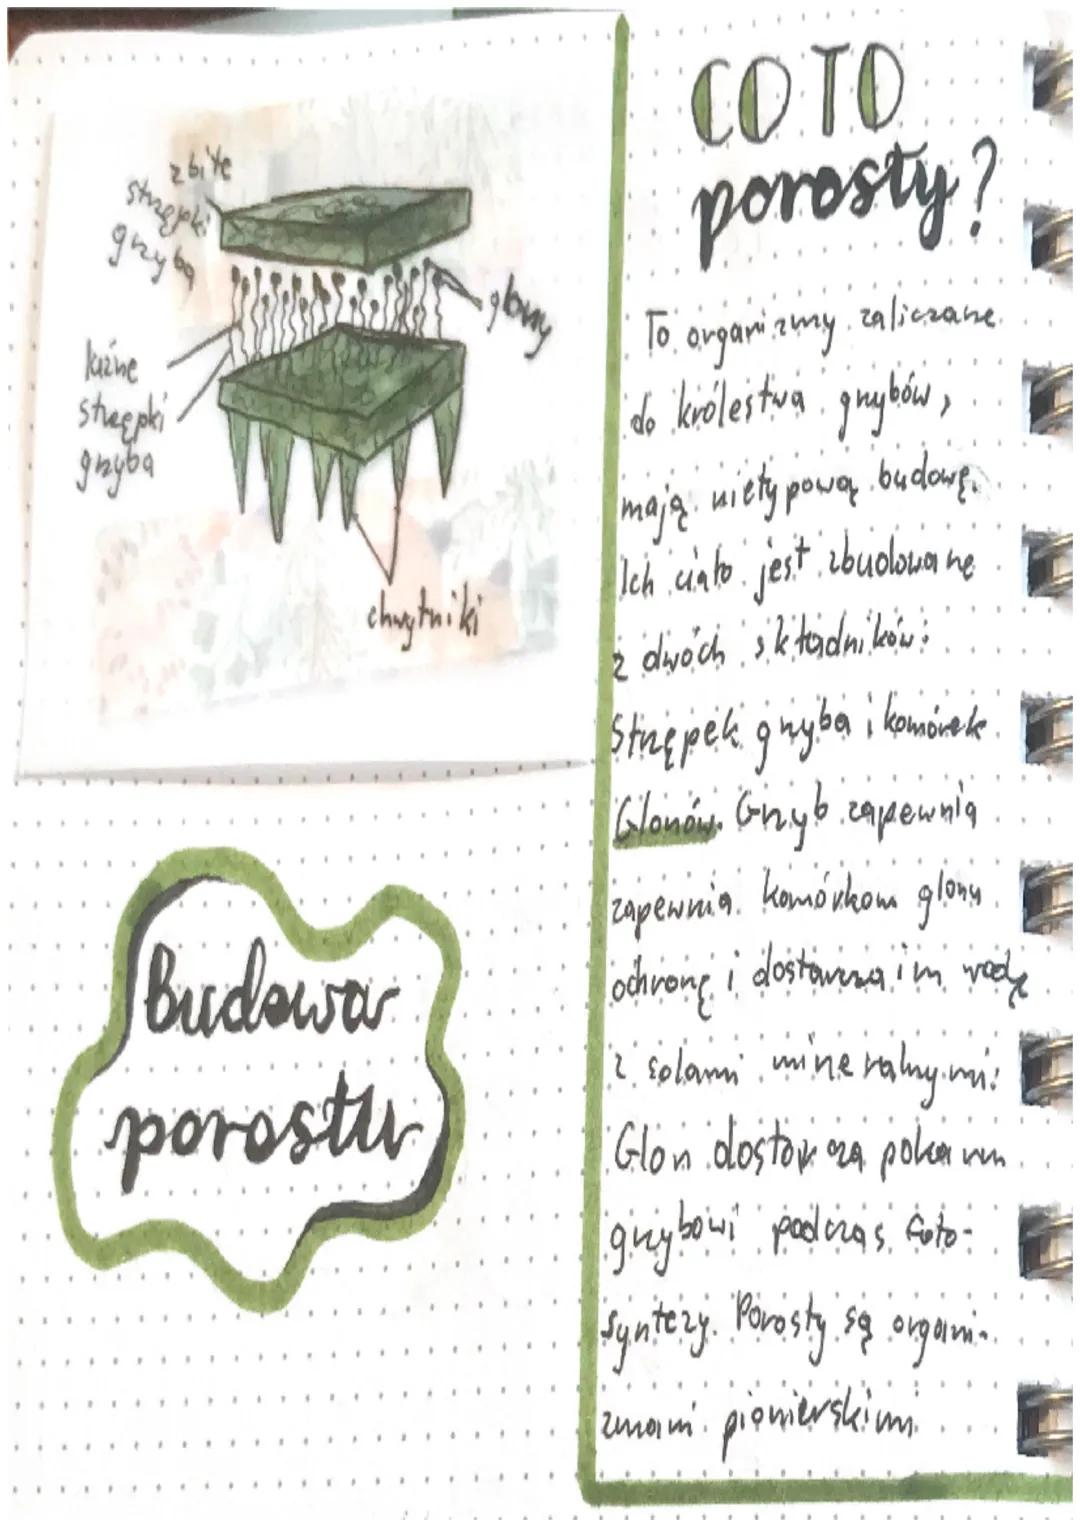 zbite
strzępki
grzyba
glony
luźne
strzępki
grzyba
chwytniki
Budowa
porostu
CO TO
porosty?
To organizmy zaliczane
do królestwa grzybów,
mają nietypową budowę.
Ich ciało jest zbudowane
z dwóch składników:
Strzępek grzyba i komórek
Glonów. Grzyb zapewnia
zapewnia komórkom glonu
ochronę i dostarcza im wodę
z solami mineralnymi.
Glon dostarcza pokarm
grzybowi podczas foto-
syntezy. Porosty są organi-
zmami pionierskimi.